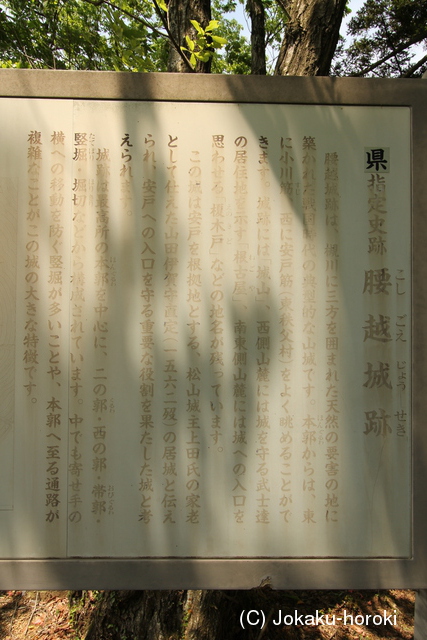 県指定史跡 腰越城跡
こし ごえ じょう せき
腰越城跡は、槻川に三方を囲まれた天然の要害の地に
築かれた戦国時代の典型的な山城です。本郭からは、東
に小川筋、西に安戸筋(東秩父村)をよく眺めることがで
きます。城跡には「城山」、西側山麓には城を守る武士達
の居住域を示す「根古屋」、南東側山麓には城への入口を
思わせる「榎木戸」などの地名が残っています。
この城は安戸を根拠地とする、松山城主上田氏の家老
として仕えた山田伊賀守直定(一五六二歿)の居城と伝え
られ、安戸への入口を守る重要な役割を果たした城と考
えられます。
城跡は最高所の本郭を中心に、二の郭・西の郭・帯郭・
竪堀・堀切などから構成されています。中でも寄せ手の
横への移動を防ぐ竪堀が多いことや、本郭へ至る通路が
複雑なことがこの城の大きな特徴です。
(C) Jokaku-horoki